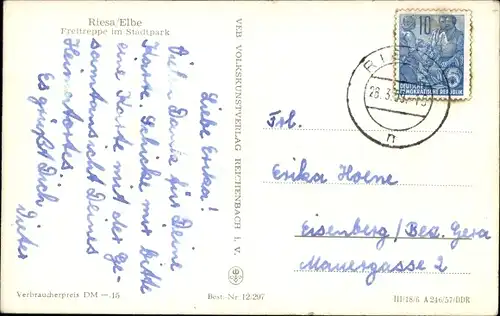 Riesa/Elbe
Freitreppe im Stadtpark
Liebe Erika!
Vielen Dank für Deine
Karte. Schicke mir bitte
eine Karte mit der Ge-
samtansicht Deines
Heimatortes.
Es grüßt Dich
Dieter
VEB VOLKSKUNSTVERLAG REICHENBACH I. V.
10
DEUTSCHE
DEMOKRATISCHE REPUBLIK
n
Frl.
Erika Hoene
Eisenberg/Bez. Gera
Mauergasse 2
Verbraucherpreis DM —.15
Best.-Nr 12/207
III/18/6 A 246/57/DDR